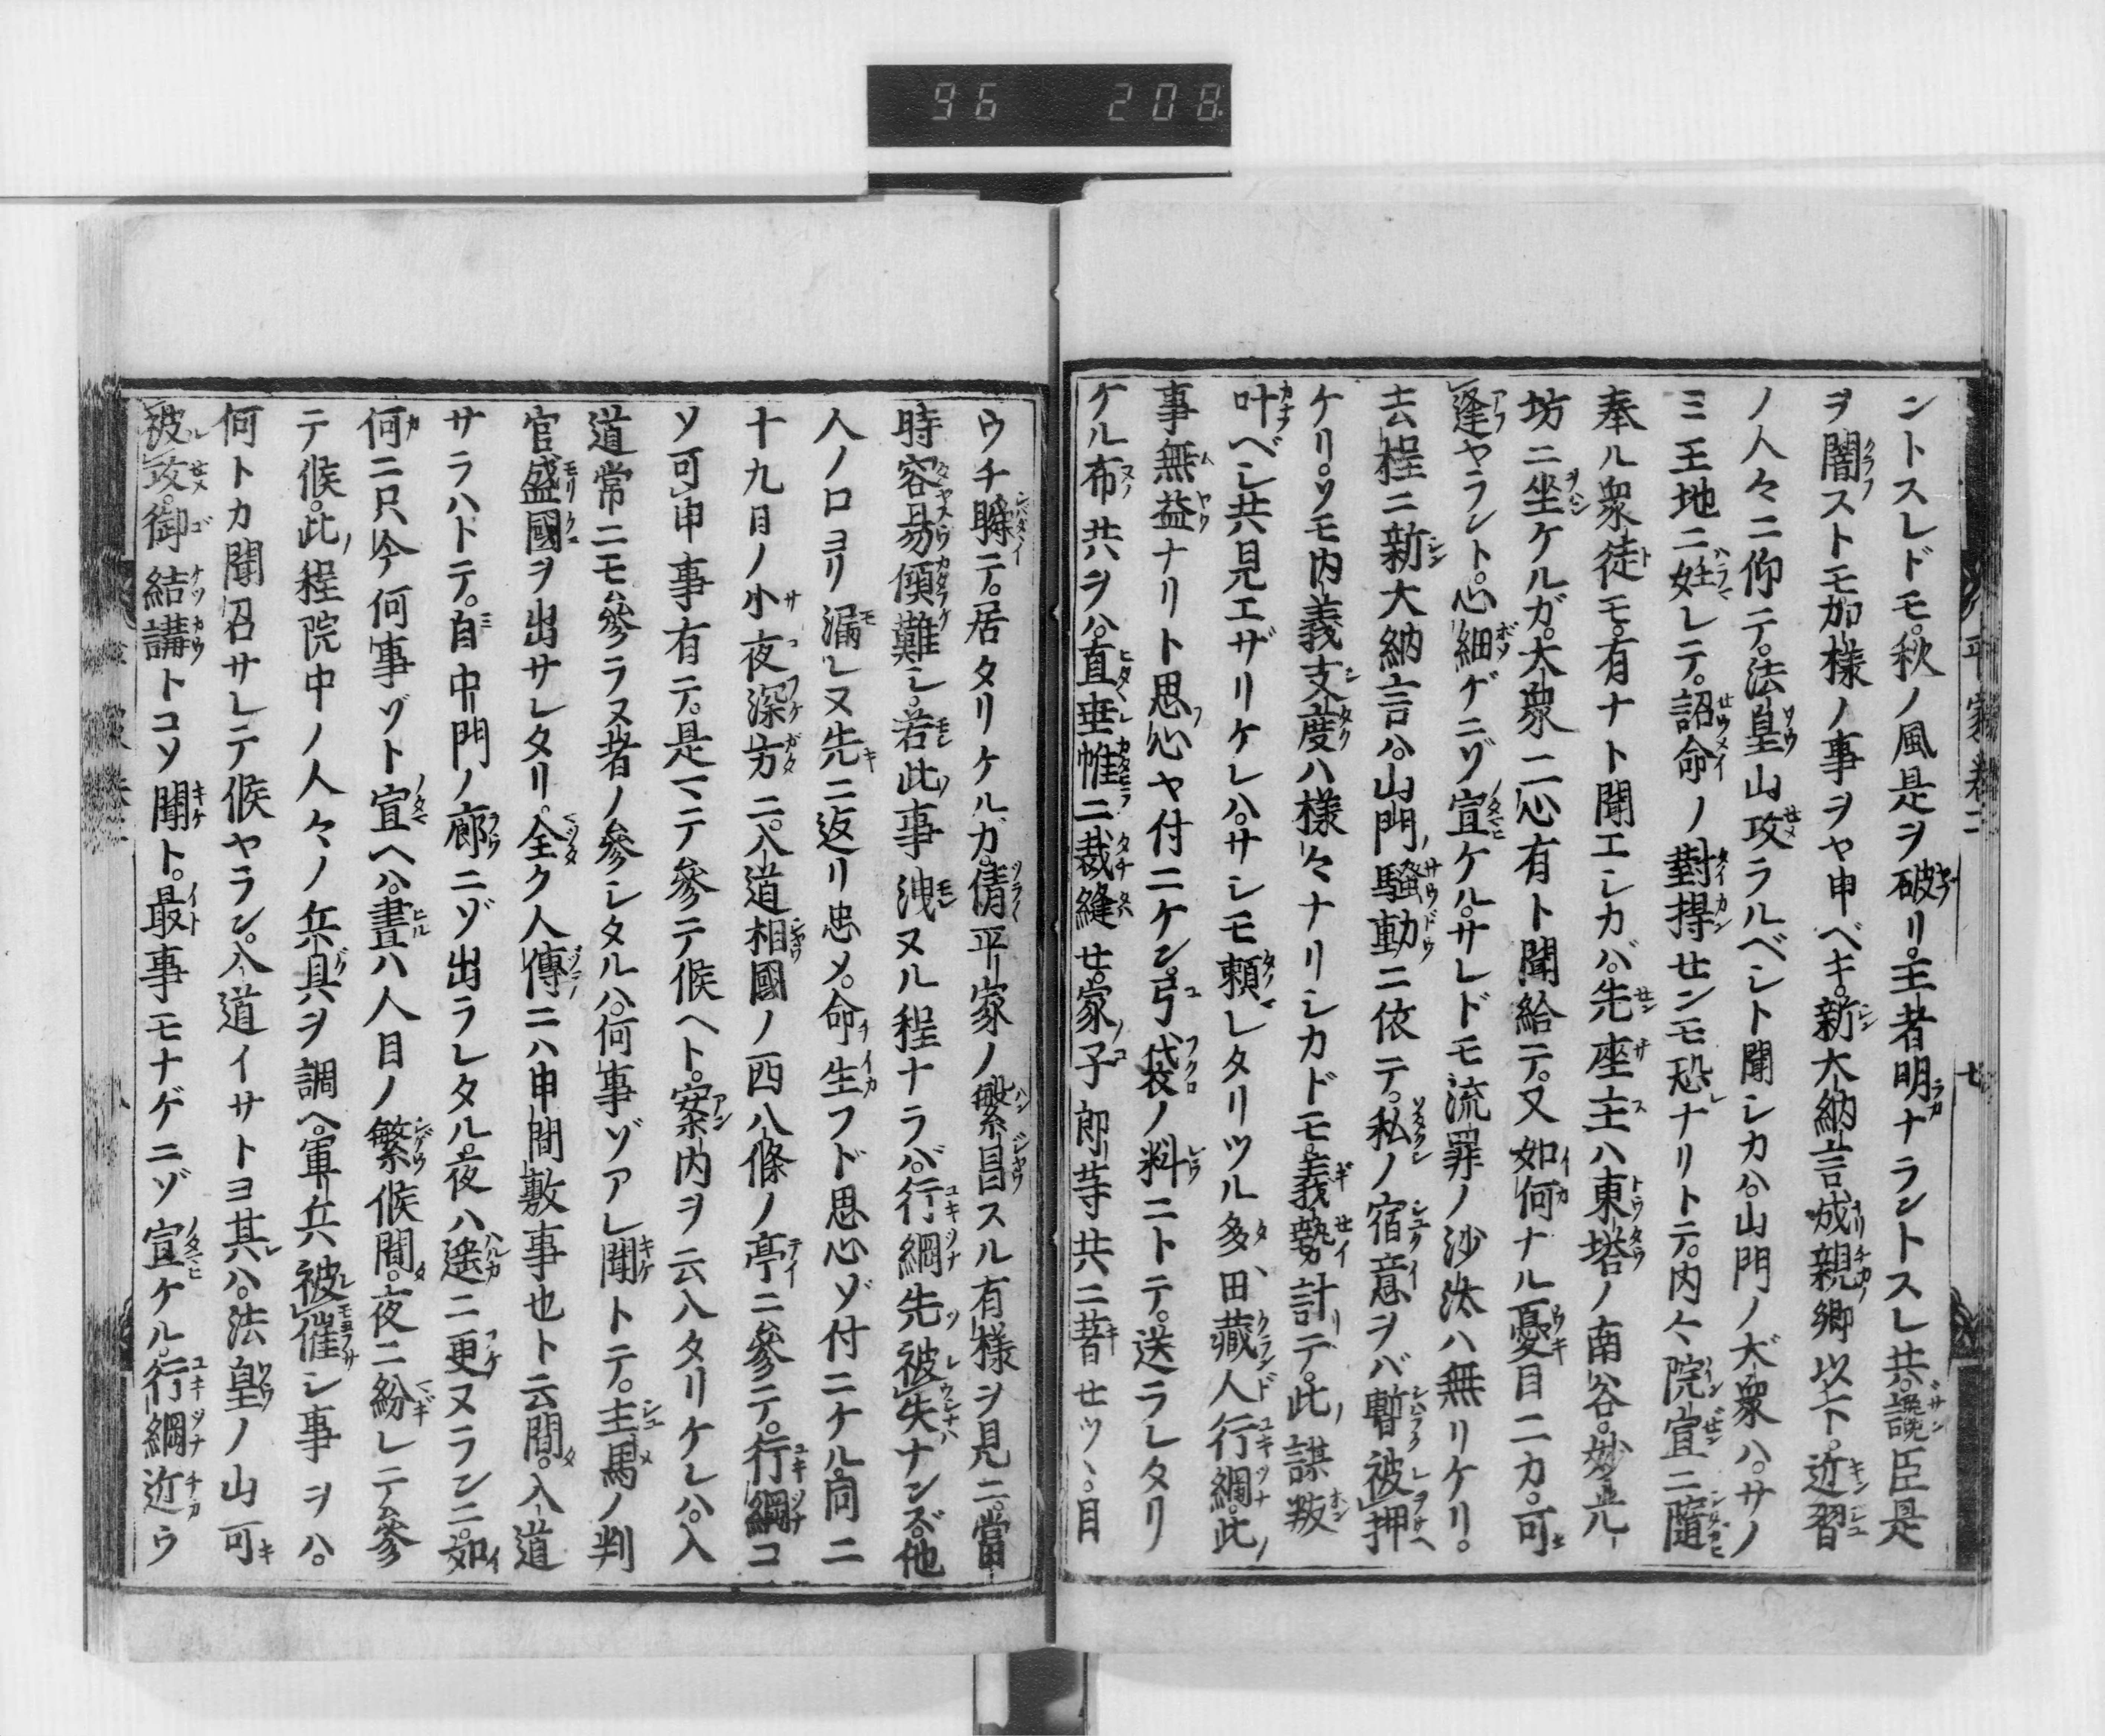 96 208.
平家巻二 七
ントスレドモ。秋ノ風是ヲ破リ。王者明ナラントスレ共。讒臣是
ヲ闇ストモ加様ノ事ヲヤ申ベキ。新大納言成親卿以下。近習
ノ人々ニ仰テ。法皇山攻ラルベシト聞シカハ。山門ノ大衆ハ。サノ
ミ王地ニ妊レテ。詔命ノ對捍センモ恐ナリトテ。内々院宣ニ隨
奉ル衆徒モ。有ナト聞エシカバ。先座主ハ東塔ノ南谷。妙光
坊ニ坐ケルガ。大衆二心有ト聞給テ。又如何ナル憂目ニカ。可
逢ヤラント。心細ゲニゾ宣ケル。サレドモ流罪ノ沙汰ハ無リケリ。
去程ニ新大納言ハ。山門ノ騒動ニ依テ。私ノ宿意ヲバ暫被押
ケリ。ソモ内義支度ハ様々ナリシカドモ。義勢計テ。此謀叛
叶ベシ共見エザリケレハ。サシモ頼レタリツル多田藏人行綱。此
事無益ナリト思心ヤ付ニケン。弓袋ノ料ニトテ。送ラレタリ
ケル布共ヲハ。直垂帷ニ裁縫セ。家子郎等共ニ著セツヽ。目
ウチ瞬テ。居タリケルカ。倩平家ノ繁昌スル有様ヲ見ニ。當
時容易傾難シ。若此事洩ヌル程ナラバ。行綱先被失ナンズ。他
人ノ口ヨリ漏レヌ先ニ返リ忠メ。命生フド思心ゾ付ニケル。同二
十九日ノ小夜深方ニ。入道相國ノ西八條ノ亭ニ參テ。行綱コ
ソ可申事有テ。是マテ參テ候ヘト。案内ヲ云入タリケレハ。入
道常ニモ參ラヌ者ノ參シタルハ。何事ゾアレ聞トテ。主馬ノ判
官盛國ヲ出サレタリ。全ク人傳ニハ申間敷事也ト云間。入道
サラハトテ。自中門ノ廊ニゾ出ラレタル。夜ハ遙ニ更ヌランニ。如
何ニ只今何事ゾト宣ヘハ。晝ハ人目ノ繁候間。夜ニ紛レテ參
テ候。此程院中ノ人々ノ兵具ヲ調ヘ。軍兵被催シ事ヲハ。
何トカ聞召サレテ候ヤラン。入道イサトヨ其ハ。法皇ノ山可
被攻。御結講トコソ聞ト。最事モナゲニゾ宣ケル。行綱近ウ